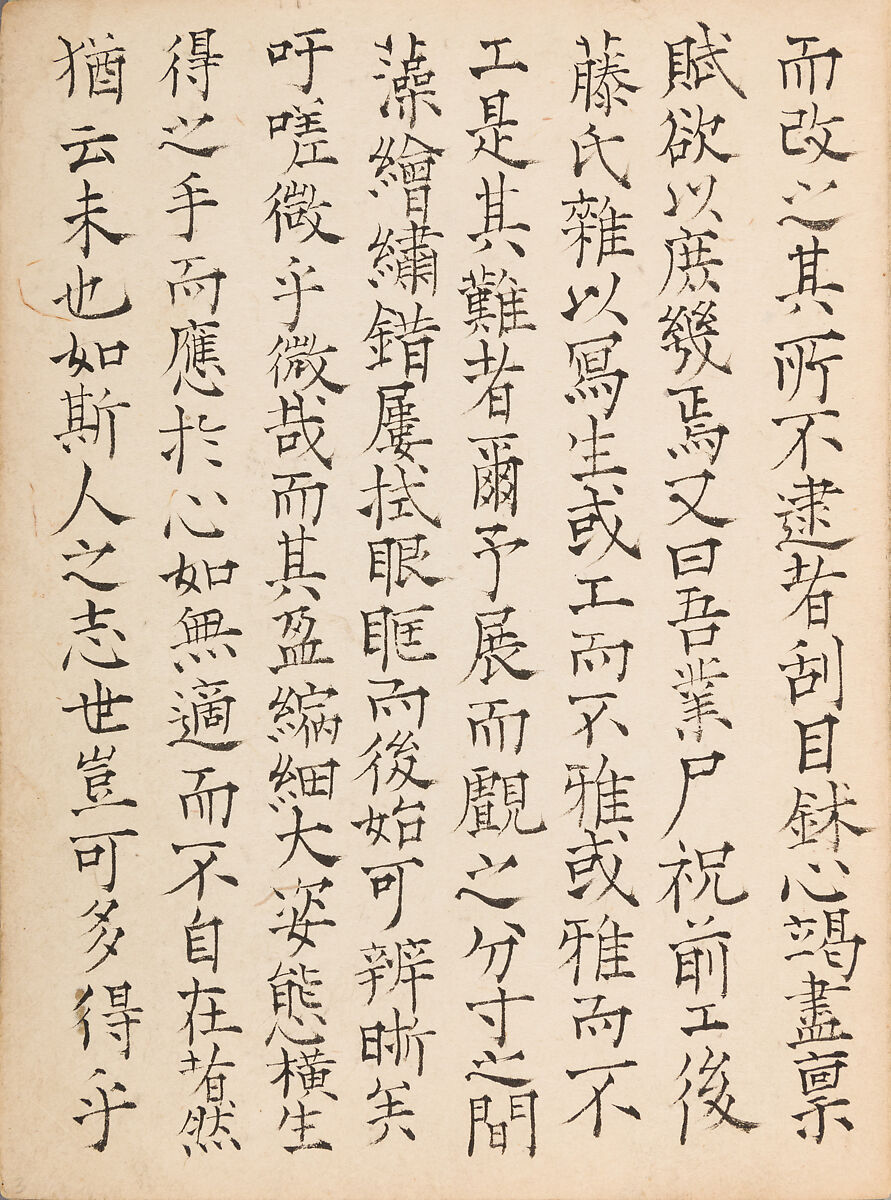 而改之其所不逮者刮目鉥心竭盡稟
賦欲以庶幾焉又曰吾業尸祝前工後
藤氏雜以寫生或工而不雅或雅而不
工是其難者爾予展而觀之分寸之間
藻繪繡錯屢拭眼眶而後始可辨晣矣
吁嗟微乎微哉而其盈縮細大姿態橫生
得之手而應於心如無適而不自在者然
猶云未也如斯人之志世豈可多得乎